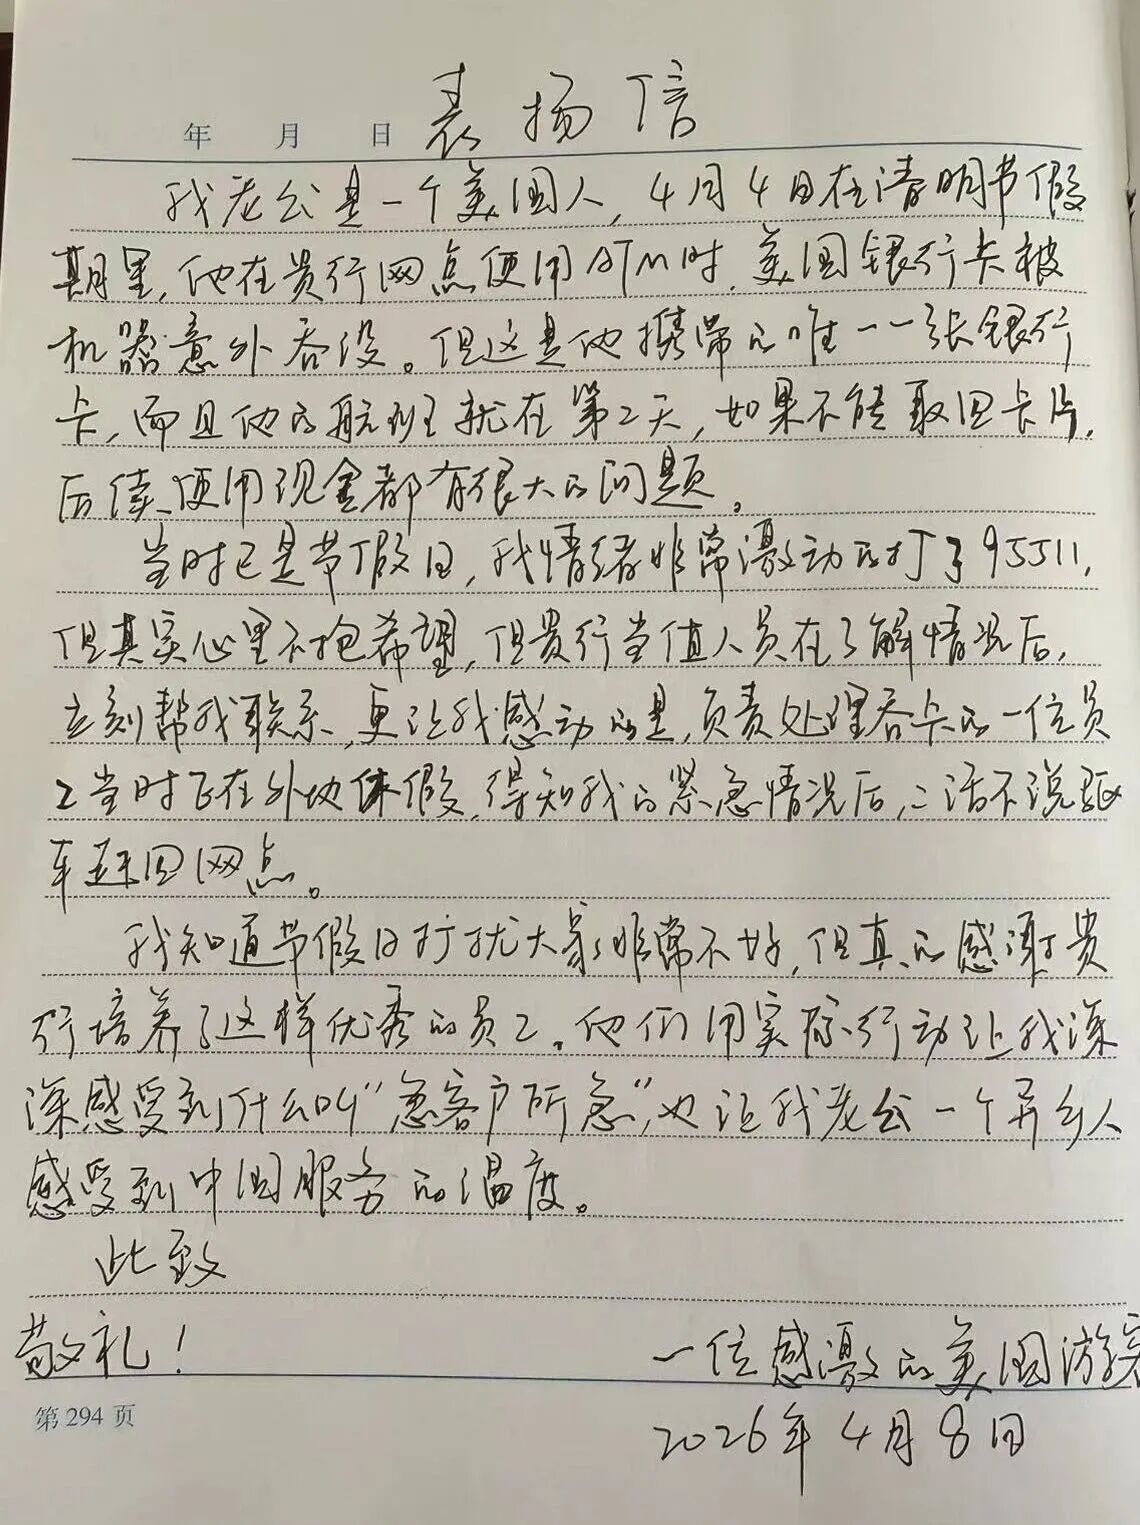 年 月 日 表扬信
我老公是一个美国人，4月4日在清明节假
期里，他在贵行网点使用ATM时，美国银行卡被
机器意外吞没。但这是他携带的唯一一张银行
卡，而且他的航班就在第2天，如果不能取回卡片，
后续使用现金都有很大的问题。
当时已是节假日，我情绪非常激动的打了95511，
但其实心里不抱希望，但贵行当值人员在了解情况后，
立刻帮我联系，更让我感动的是，负责处理吞卡的一位员
工当时正在外地休假，得知我的紧急情况后，二话不说驱
车赶回网点。
我知道节假日打扰大家非常不好，但真的感谢贵
行培养了这样优秀的员工。他们用实际行动让我深
深感受到什么叫“急客户所急”，也让我老公一个异乡人
感受到中国服务的温度。
此致
敬礼！
一位感激的美国游客
第294页
2026年4月8日